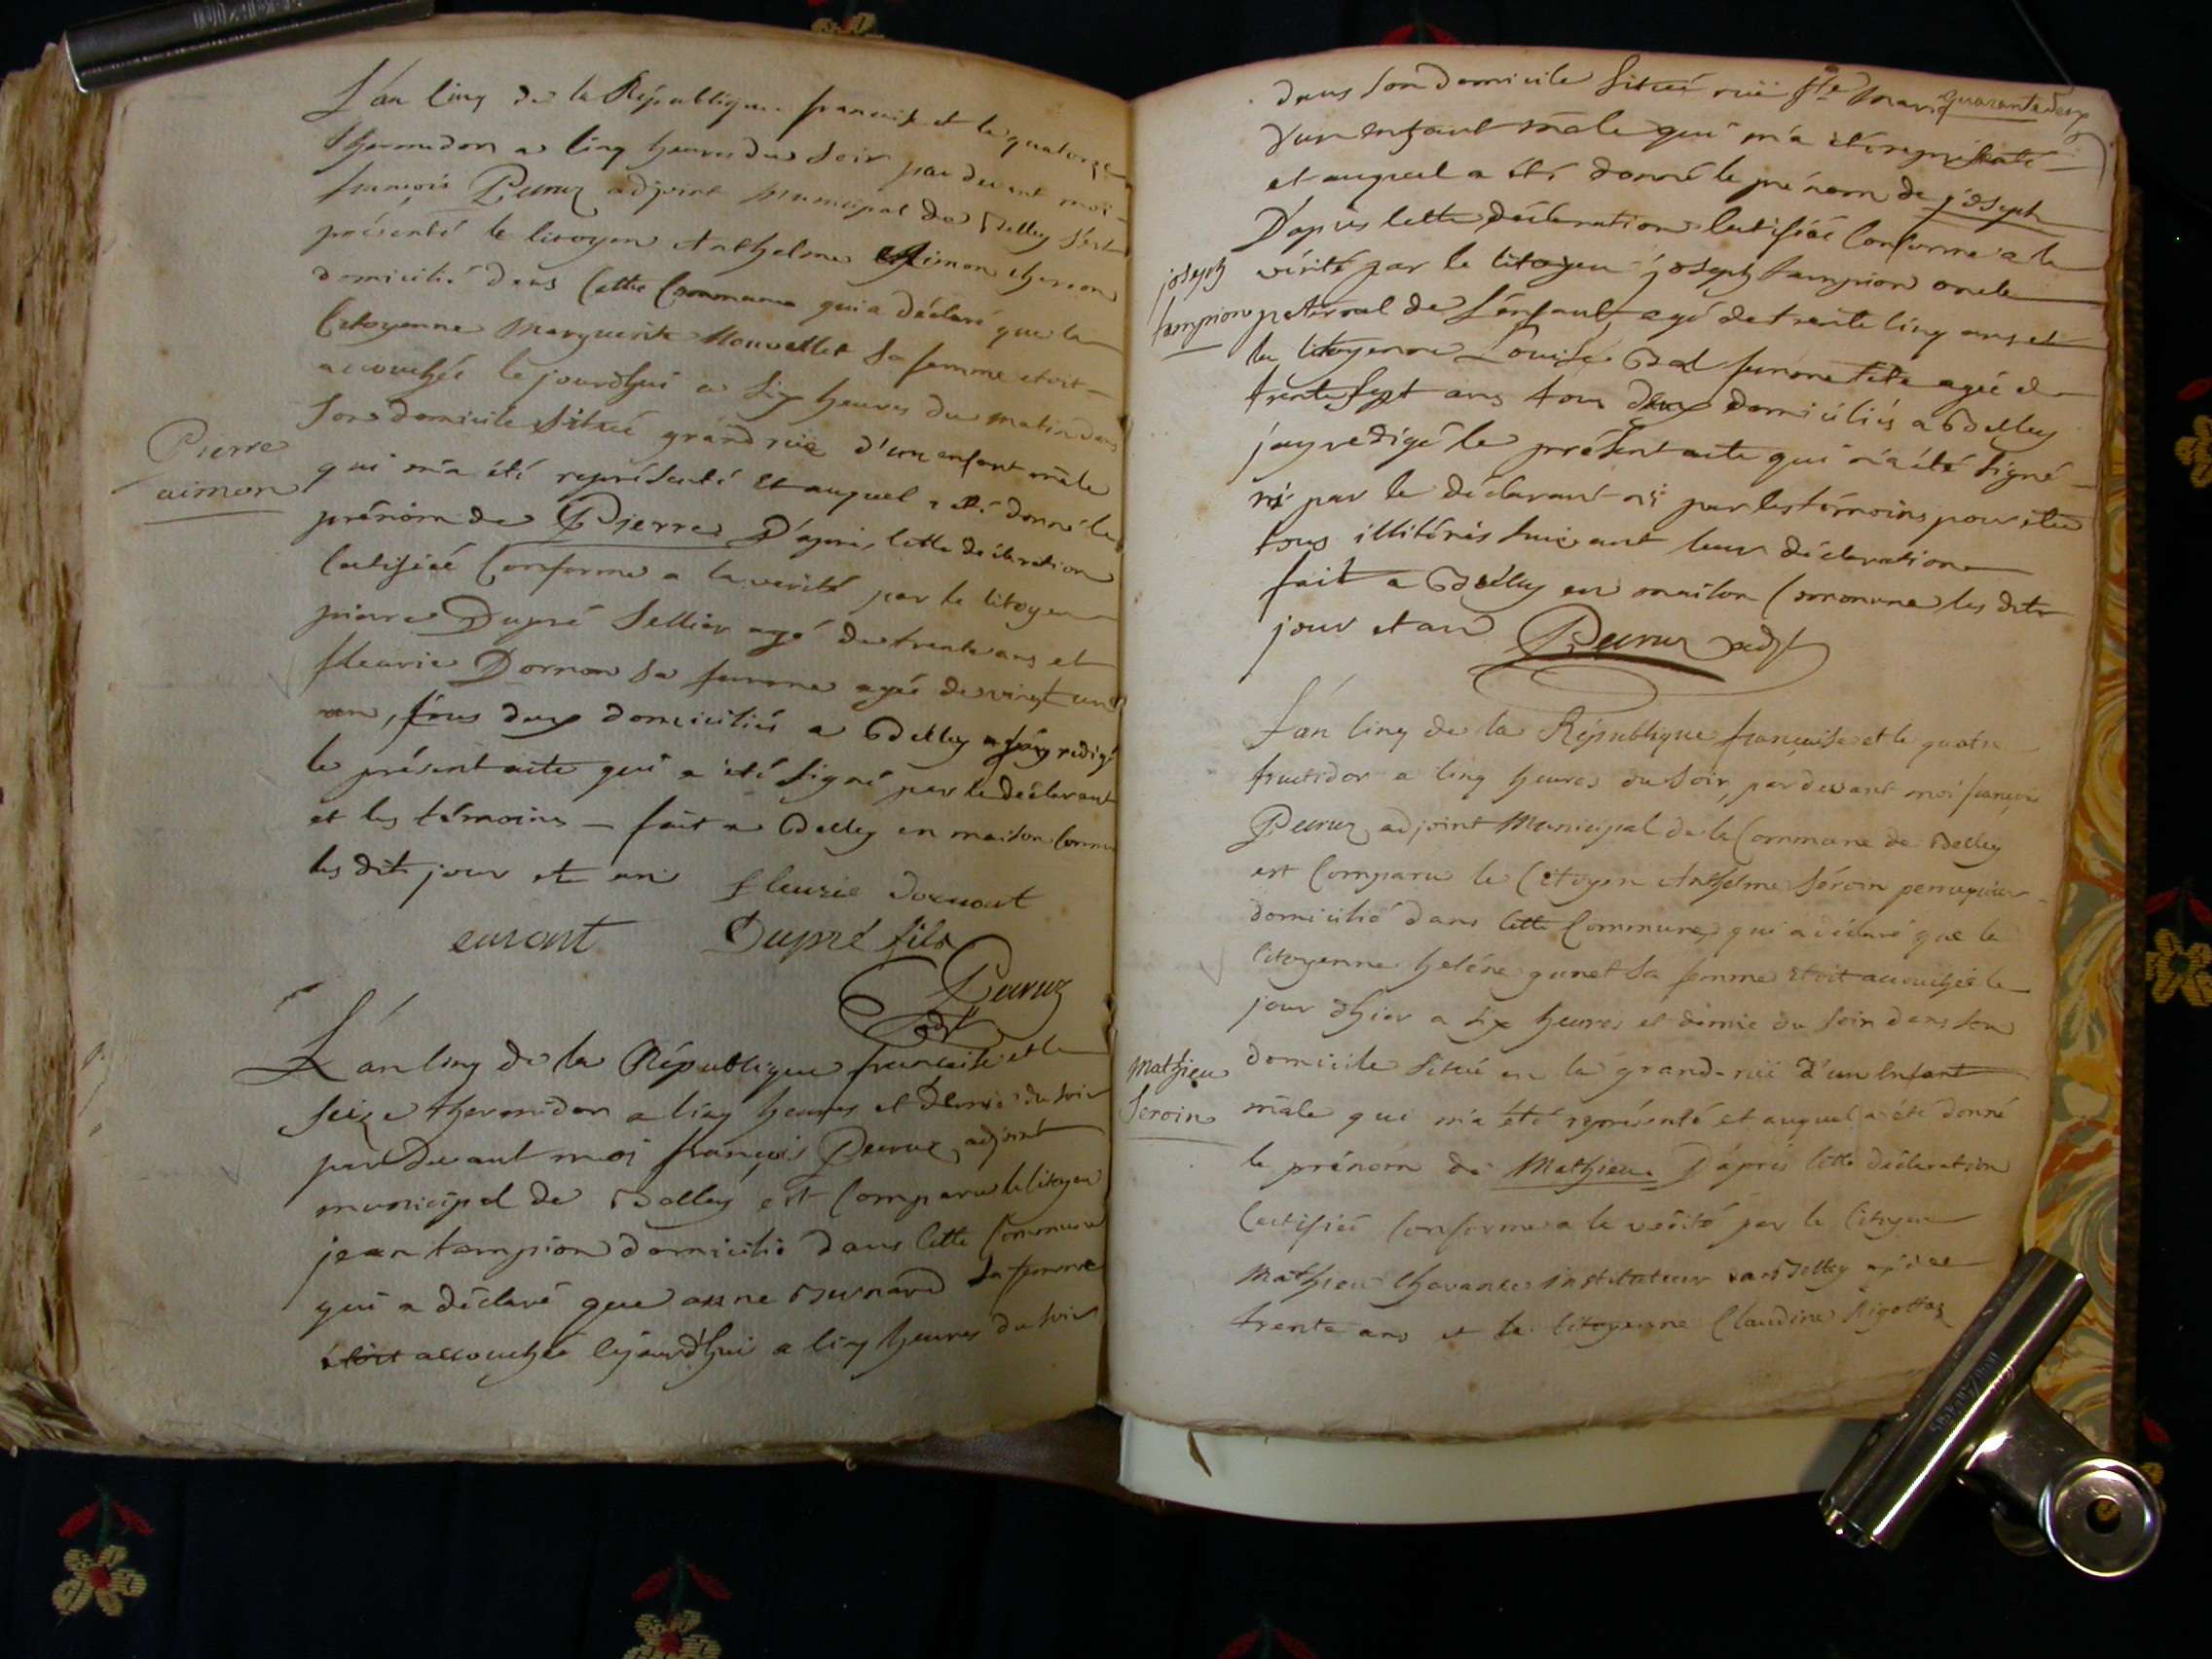 L'an cinq de la République francaise et le quatorze
thermidor a cinq heures du soir par devant moi
françois Peuruz adjoint municipal de Belley s'est
présenté le citoyen Anthelme Aimon
domicilié dans cette Commune qui a déclaré que la
Citoyenne Marguerite Nouvellet sa femme etoit
accouchée le jourdhui a six heures du matin dans
son domicile situé grand rüe d'un enfant mâle
Pierre
aimon
qui m'a été représenté et auquel a été donné le
prénom de Pierre D'après cette déclaration
Certifiée Conforme a la verité par le citoyen
pierre Dupré Sellier agé de trente ans et
fleurie Dornon sa femme agée de vingt un
an, tous deux domiciliés a Belley jay redigé
le présent acte qui a été signé par le déclarant
et les témoins — fait a Belley en maison Commune
les dit jour et an
fleurie dornont
Dupré fils
Peuruz
adjt
L'an cinq de la République francaise et le
seize thermidor a cinq heures et demie du soir
par devant moi françois Peuruz adjoint
municipal de Belley est Comparu le citoyen
jean tampion domicilié dans cette Commune
qui a déclaré que anne Burnard sa femme
étoit accouchée lejourdhui a cinq heures du soir
quarante deux
dans son domicile situé rüe Ste Marie
d'un enfant mâle qui m'a été représenté
et auquel a été donné le prénom de joseph
D'après cette déclaration certifiée Conforme a la
joseph
tampion
vérité par le citoyen joseph tampion oncle
paternel de L'enfant, agé de trente cinq ans et
la citoyenne Louise Bal femme agée de
trente sept ans tous deux domiciliés a Belley
jay redigé le présent acte qui n'a été signé
ni par le déclarant ni par les témoins pour etre
tous illitérés suivant leur déclaration
fait a Belley en maison Commune les dits
jour et an Peuruz adjt
L'an cinq de la République française et le quatre
fructidor a cinq heures du soir, par devant moi françois
Peuruz adjoint Municipal de la Commune de Belley
est Comparu le Citoyen Anthelme Séroin perruquier
domicilié dans cette Commune, qui a déclaré que la
citoyenne heléne gunet sa femme etoit accouchée le
jour d'hier a six heures et demie du soir dans son
Mathieu
Seroin
domicile situé en la grand-rüe d'un Enfant
mâle qui m'a été représenté et auquel a été donné
le prénom de Mathieu. D'après cette déclaration
Certifiée Conforme a la verité par le Citoyen
Mathieu Chavance instituteur a Belley agé de
trente ans et la citoyenne Claudine Rigottaz